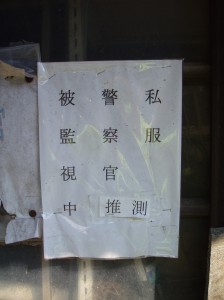 私服
警察官
推測
被監視中